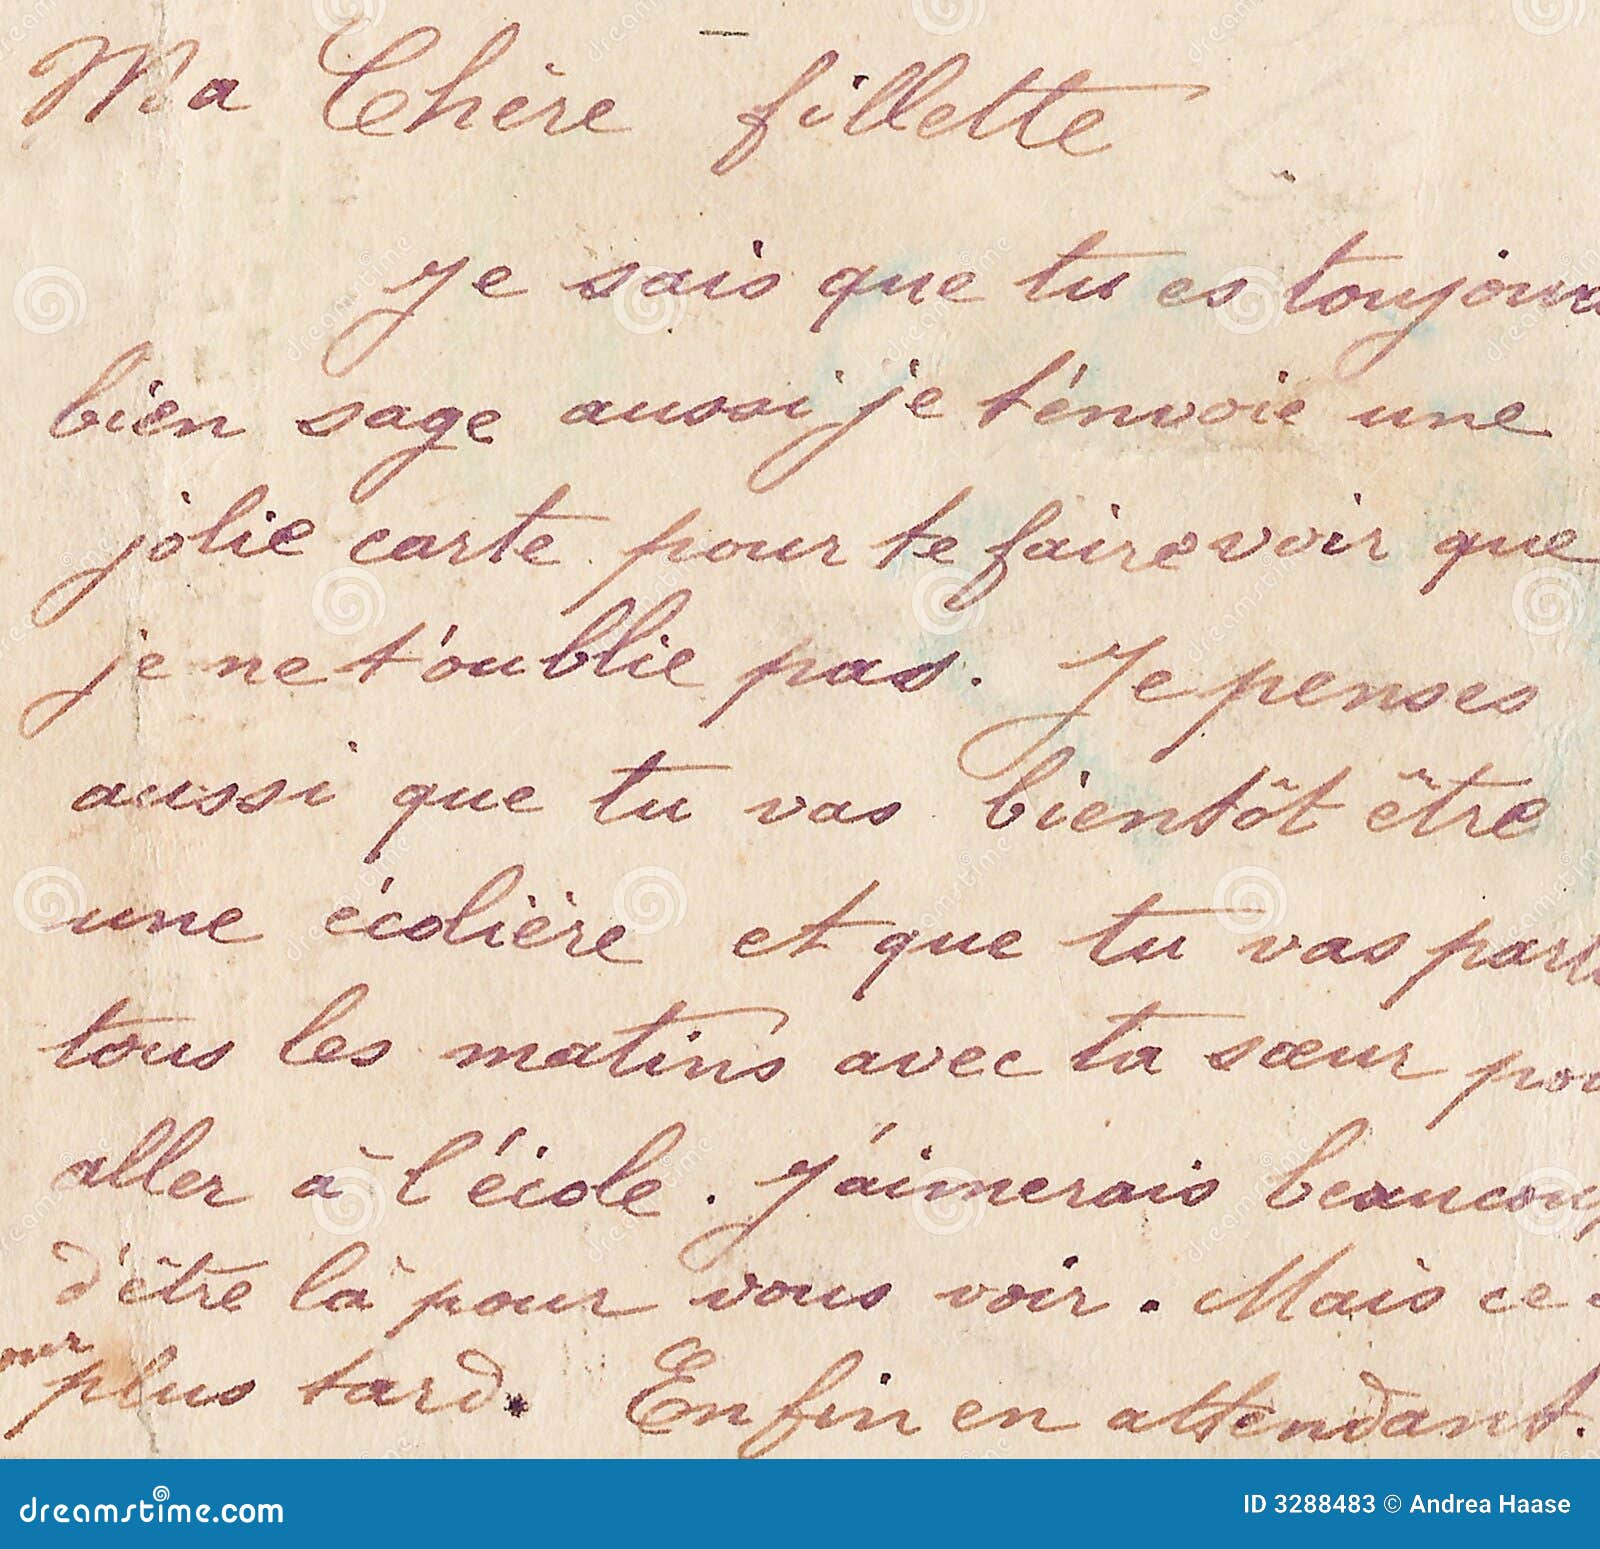 Ma Chère fillette
Je sais que tu es toujours
bien sage aussi je t'envoie une
jolie carte pour te faire voir que
je ne t'oublie pas. Je penses
aussi que tu vas bientôt être
une écolière et que tu vas
tous les matins avec ta sœur
aller à l'école. J'aimerais beaucoup
d'être là pour vous voir. Mais ce
our
plus tard. Enfin en attendant.
dreamstime.com
ID 3288483 © Andrea Haase